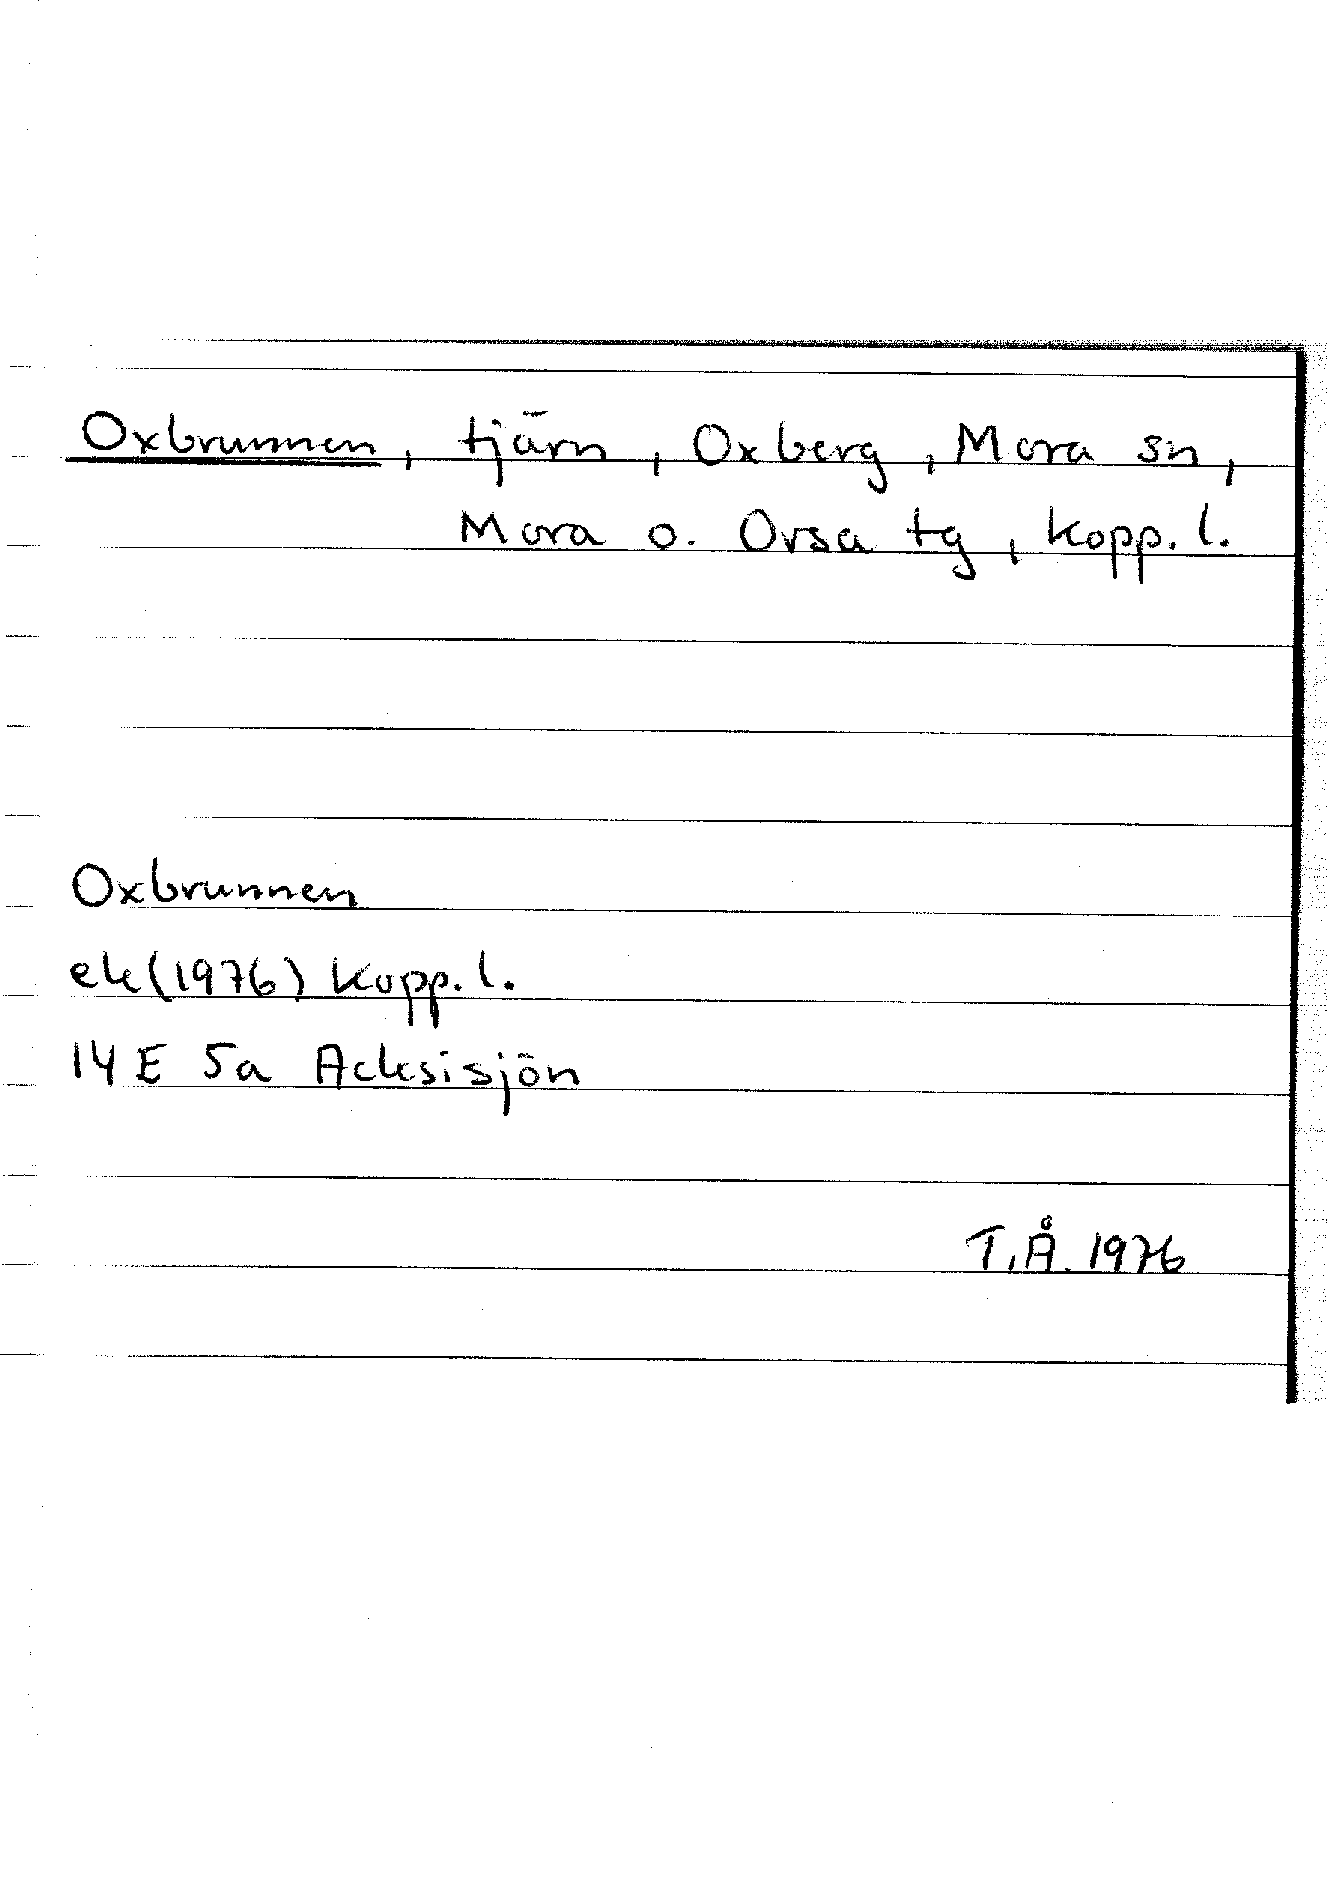 Oxbrunnen, tjärn, Oxberg, Mora sn,
Mora o. Orsa tg, Kopp. l.
Oxbrunnen
ek(1976) Kopp. l.
14 E 5a Acksisjön
T.Å. 1976